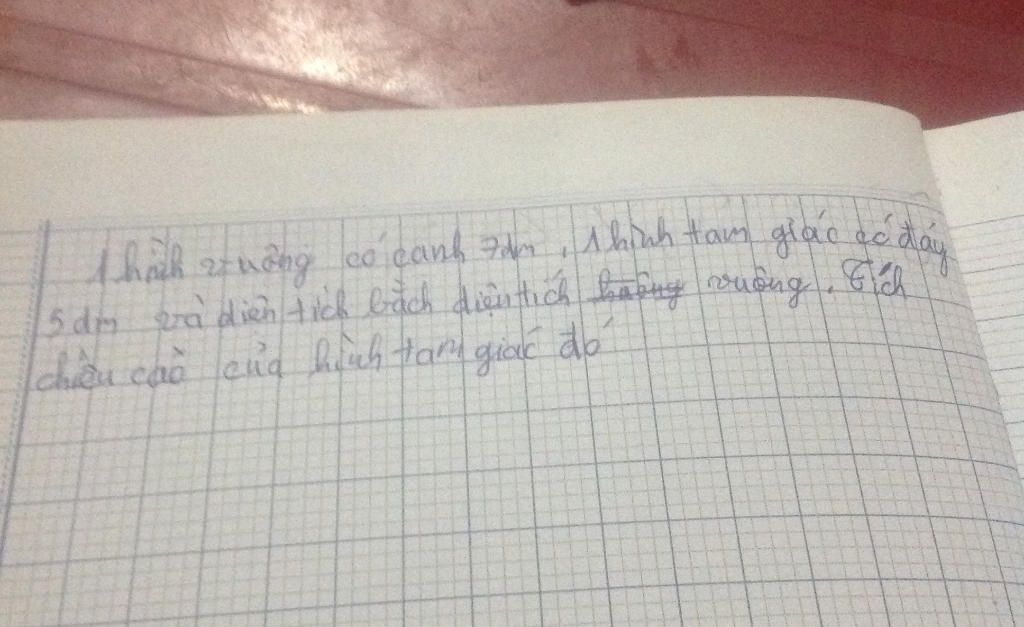 1 hình vuông có cạnh 7dm, 1 hình tam giác có đáy
5 dm và diện tích bằng diện tích vuông. Tích
chiều cao của hình tam giác đó